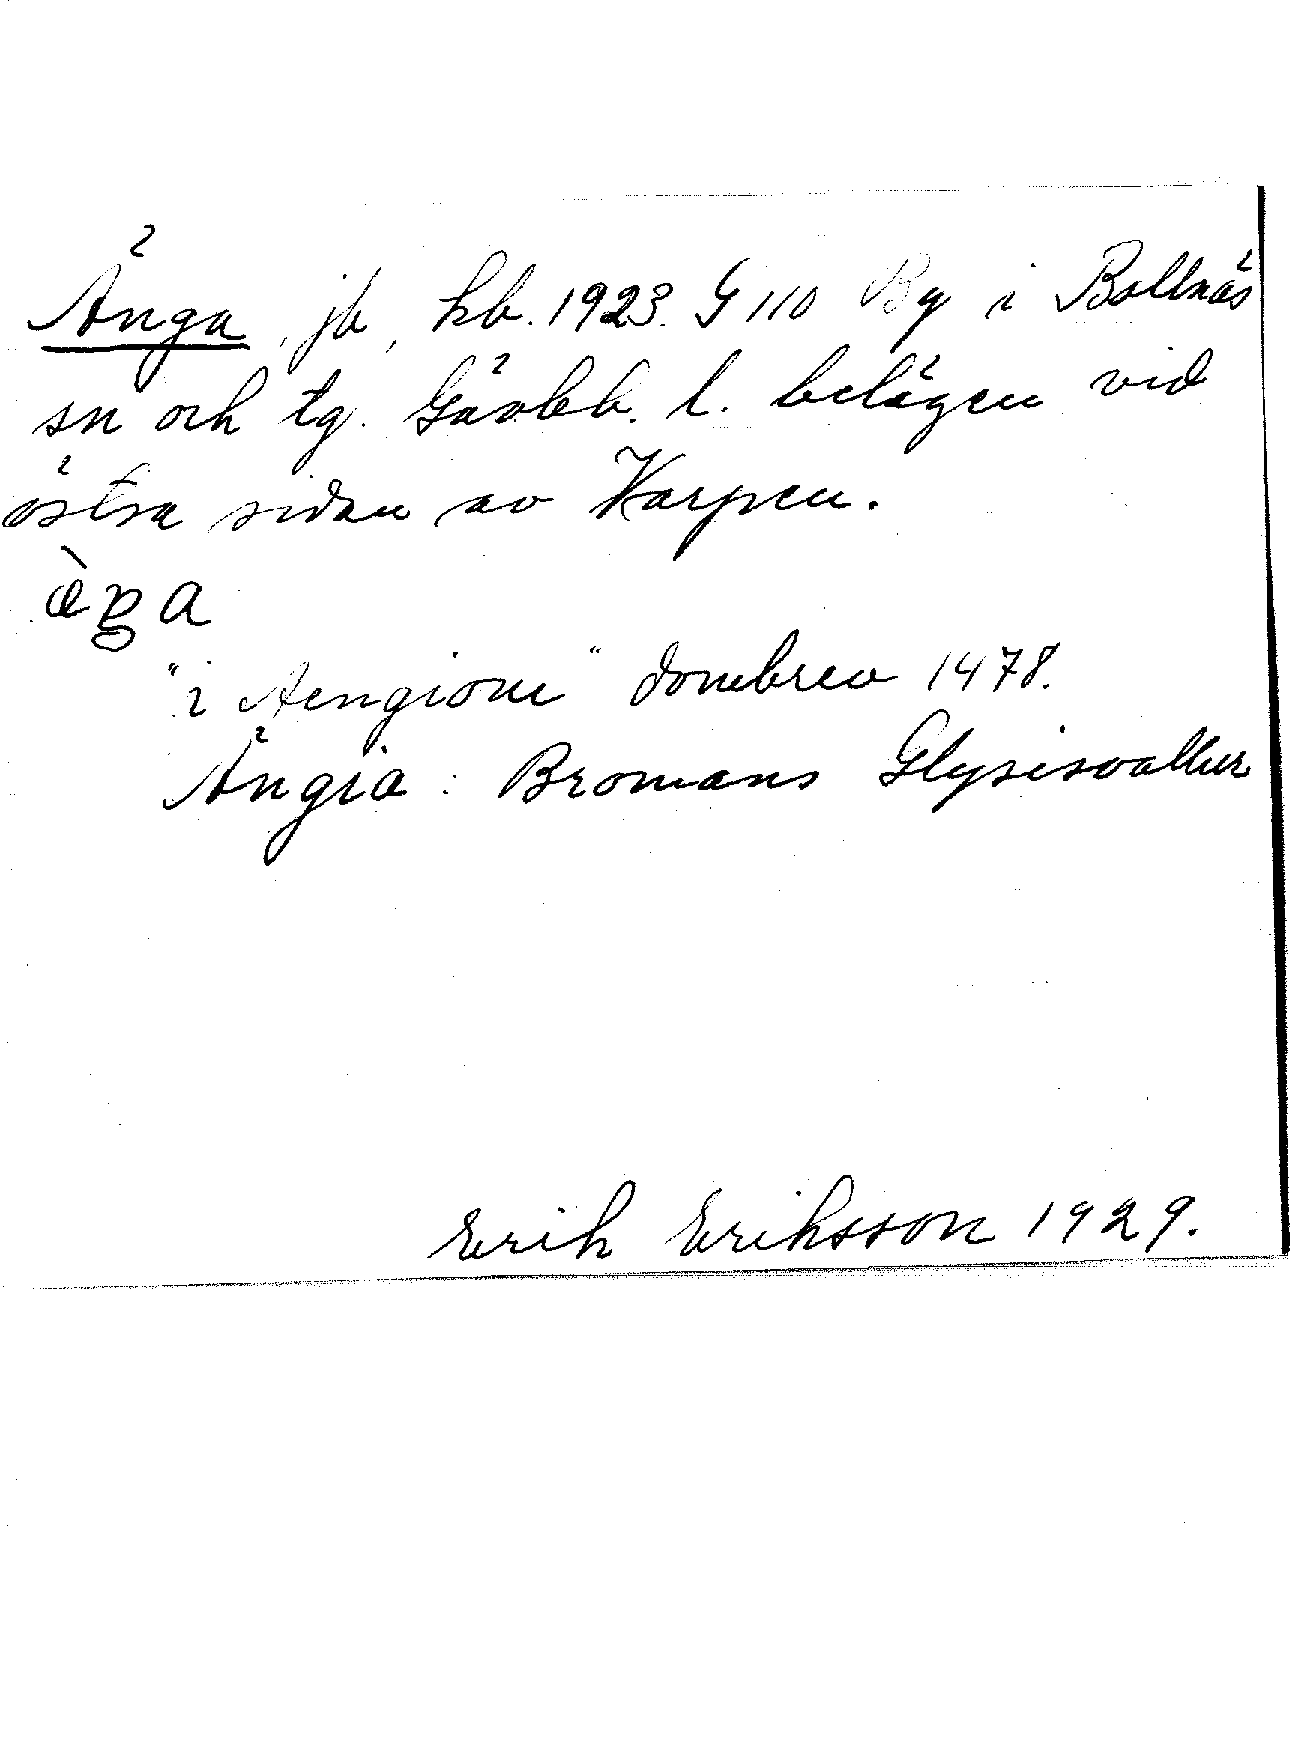 Änga, jb, kb. 1923. G 110 By i Bollnäs
sn och tg. Gävleb. l. belägen vid
östra sidan av Varpen.
"i Aengiom" dombrev 1478.
Ängia: Bromans Glysisvallur
Erik Eriksson 1929.